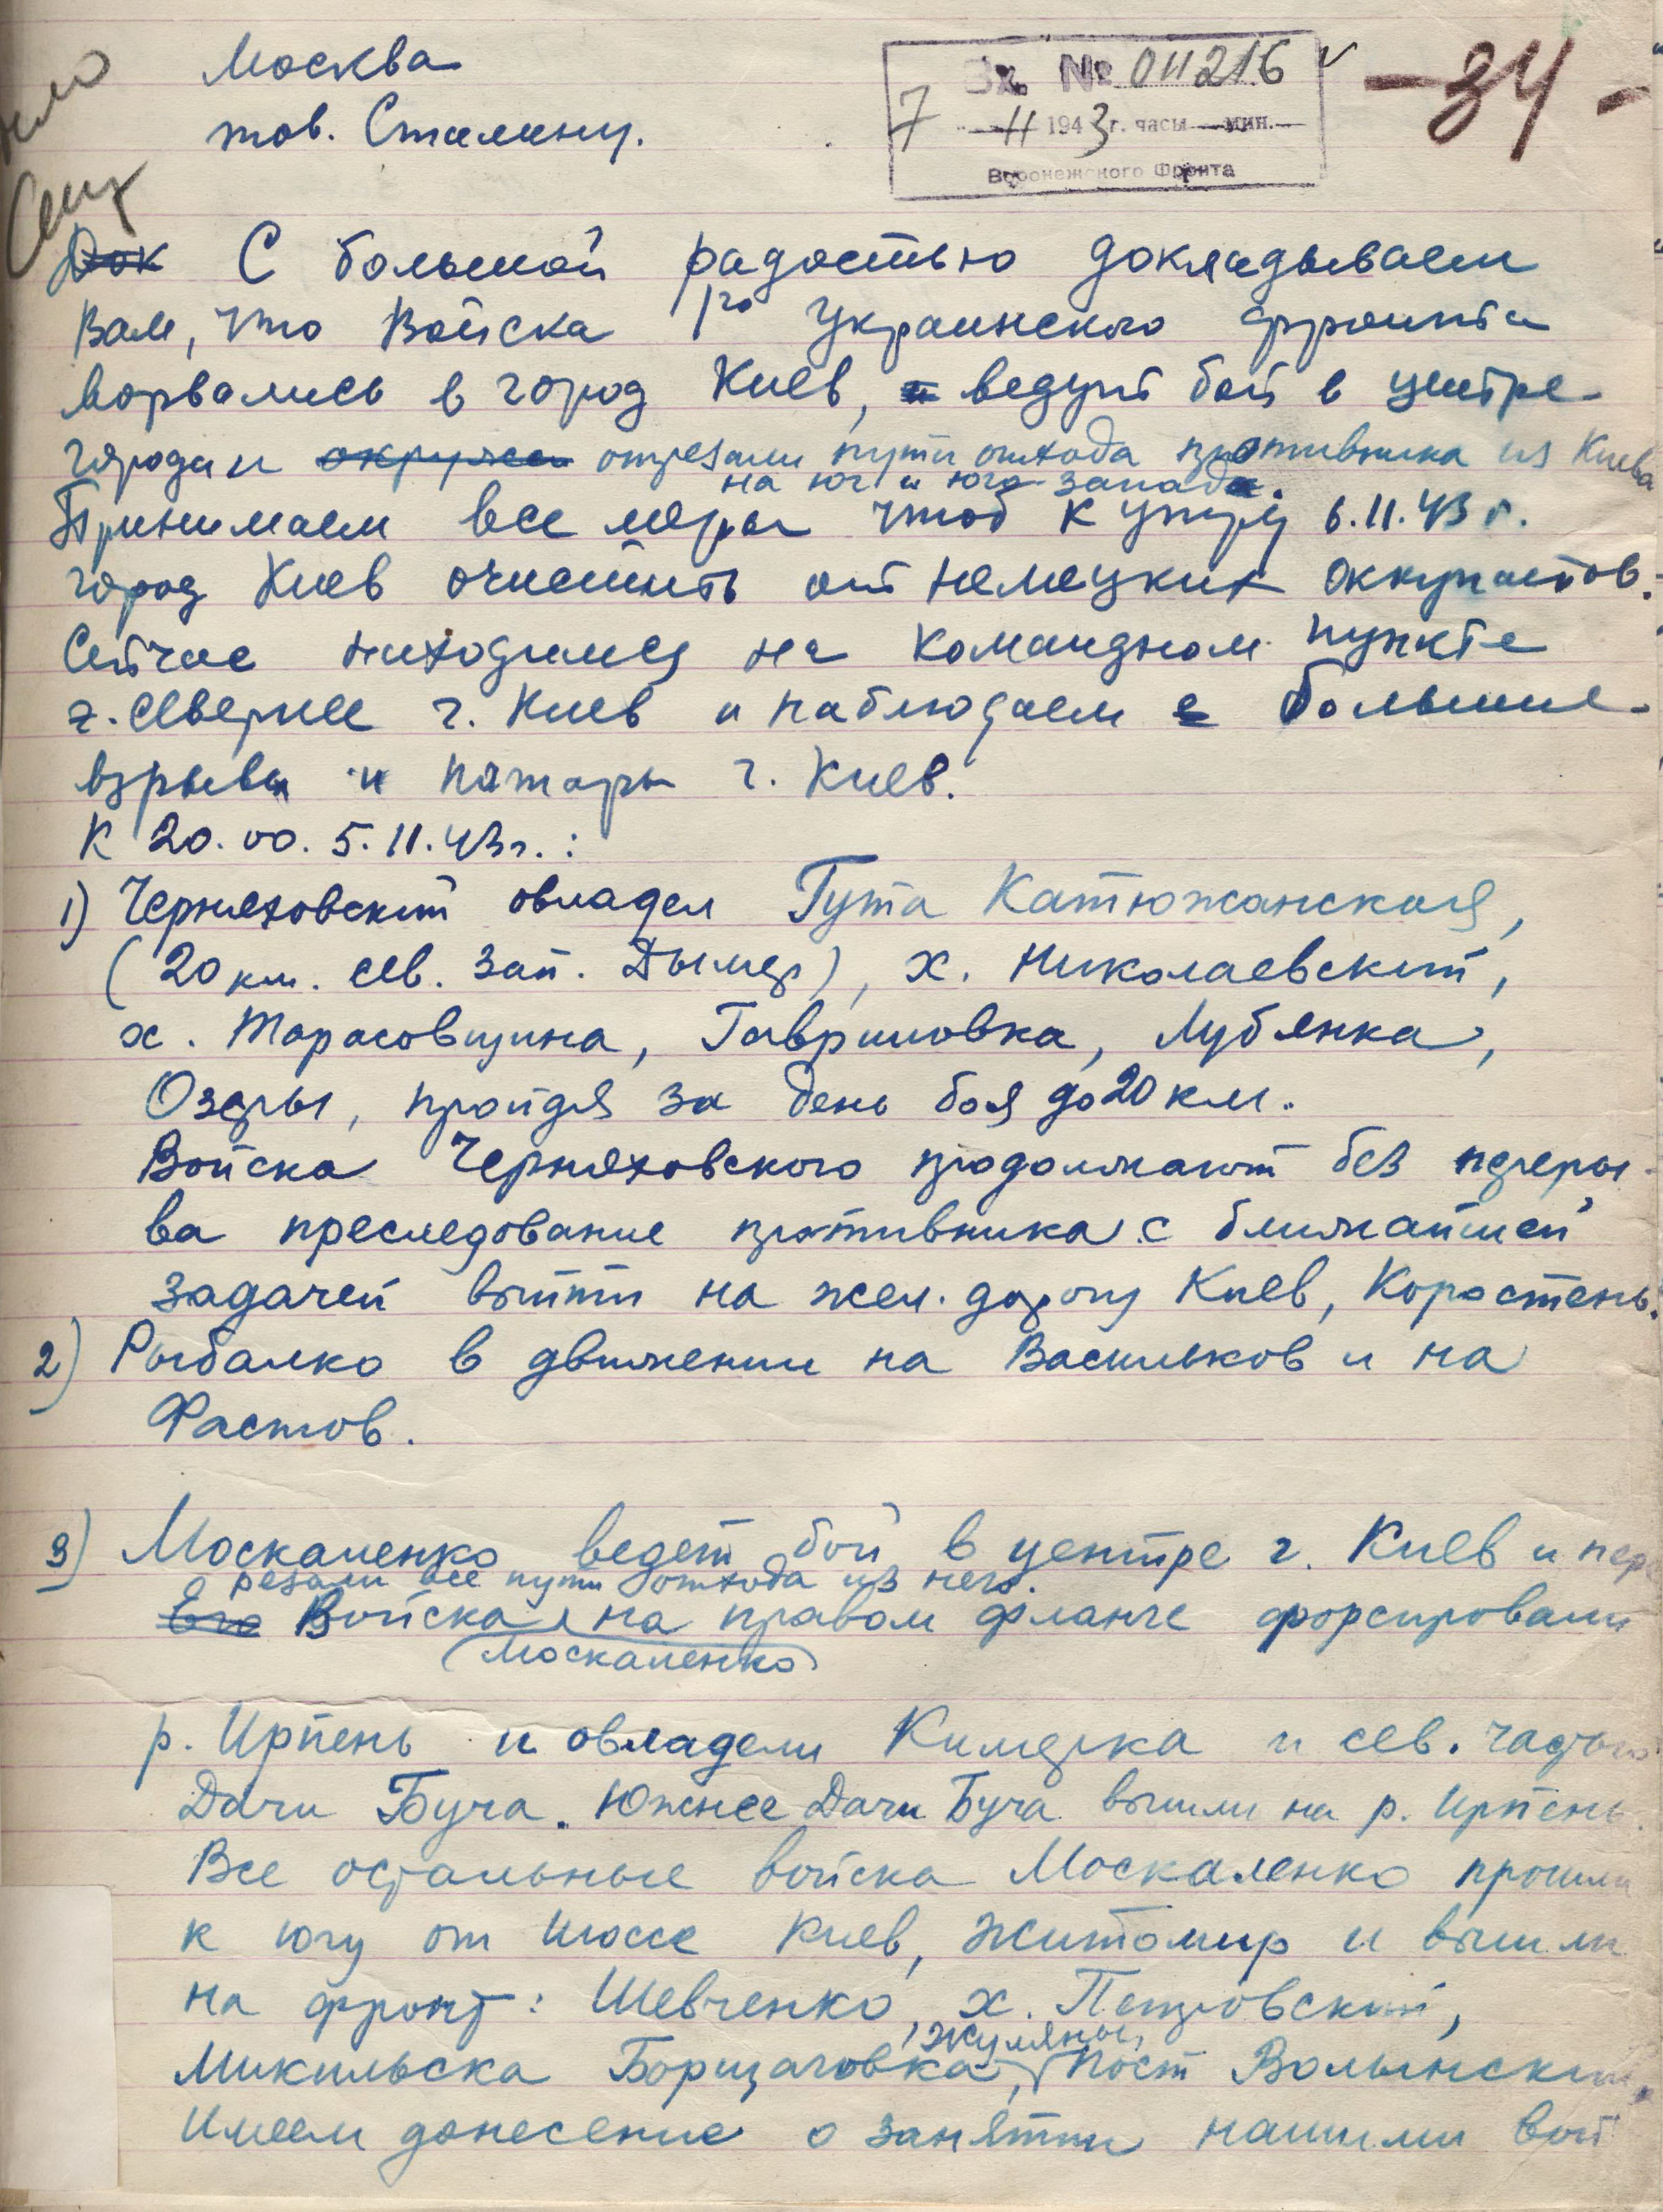 Москва
тов. Сталину.
Вх. № 011216
7 11 1943 г. часы мин.
Воронежского Фронта
-34-
Док С большой радостью докладываем
Вам, что войска 1го Украинского фронта
ворвались в город Киев, и ведут бой в центре
города и окружен отрезали пути отхода противника из Киева
на юг и юго-запад.
Принимаем все меры чтоб к утру 6.11.43 г.
город Киев очистить от немецких оккупантов.
Сейчас находимся на командном пункте
севернее г. Киев и наблюдаем большие
взрывы и пожары г. Киев.
К 20.00. 5.11.43г. :
1) Черняховский овладел Гута Катюжанская,
(20 км. сев. зап. Дымер), х. Николаевский,
х. Тарасовщина, Гавриловка, Лубянка,
Озеры, пройдя за день боя до 20 км.
Войска Черняховского продолжают без переры-
ва преследование противника с ближайшей
задачей выйти на жел. дорогу Киев, Коростень.
2) Рыбалко в движении на Васильков и на
Фастов.
3) Москаленко ведет бой в центре г. Киев и пере
резали все пути отхода из него.
Его Войска на правом фланге форсировали
Москаленко
р. Ирпень и овладели Кимерка и сев. частью
Дачи Буча. Южнее Дачи Буча вышли на р. Ирпень.
Все остальные войска Москаленко прошли
к югу от шоссе Киев, Житомир и вышли
на фронт: Шевченко, х. Петровский,
Жуляны,
Микильска Борщаговка, Пост Волынский.
Имеем донесение о занятии нашими вой